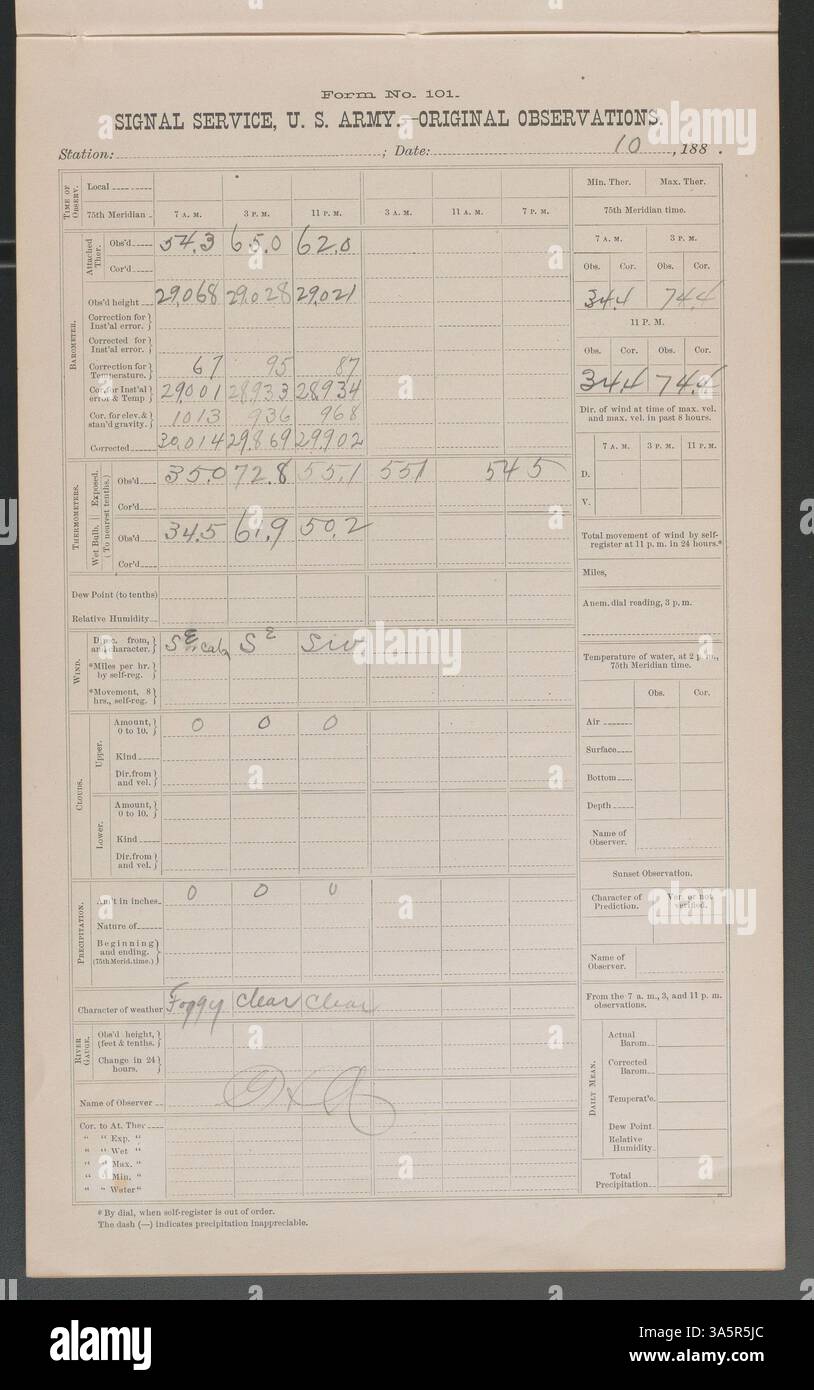 Form No. 101.
SIGNAL SERVICE, U. S. ARMY.—ORIGINAL OBSERVATIONS.
Station: ; Date: 10 , 188 .
TIME OF OBSERV.
Local
75th Meridian 7 A. M. 3 P. M. 11 P. M. 3 A. M. 11 A. M. 7 P. M.
BAROMETER.
Attached Ther.
Obs'd 54.3 65.0 62.0
Cor'd
Obs'd height 29.068 29.028 29.021
Correction for Inst'al error.
Corrected for Inst'al error.
Correction for Temperature. 67 95 87
Cor. for Inst'al error & Temp 29.001 28.933 28.934
Cor. for elev. & stan'd gravity. 1013 936 968
Corrected 30.014 29.869 29.902
THERMOMETERS.
Exposed. (To nearest tenths.)
Obs'd 35.0 72.8 55.1 551 545
Cor'd
Wet Bulb.
Obs'd 34.5 61.9 50.2
Cor'd
Dew Point (to tenths)
Relative Humidity
WIND.
Direc. from, and character. SE SE SW
*Miles per hr. by self-reg.
*Movement, 8 hrs., self-reg.
CLOUDS.
Upper.
Amount, 0 to 10. 0 0 0
Kind
Dir. from and vel.
Lower.
Amount, 0 to 10.
Kind
Dir. from and vel.
PRECIPITATION.
Am't in inches 0 0 0
Nature of
Beginning and ending. (75th Merid. time.)
Character of weather Foggy Clear Clear
RIVER GAUGE.
Obs'd height, (feet & tenths.)
Change in 24 hours.
Name of Observer
Cor. to At. Ther
" " Exp. "
" " Wet "
" " Max. "
" " Min. "
" " Water "
* By dial, when self-register is out of order.
The dash (—) indicates precipitation inappreciable.
Min. Ther. Max. Ther.
75th Meridian time.
7 A. M. 3 P. M.
Obs. Cor. Obs. Cor.
34.4 74.4
11 P. M.
Obs. Cor. Obs. Cor.
34.4 74.4
Dir. of wind at time of max. vel. and max. vel. in past 8 hours.
7 A. M. 3 P. M. 11 P. M.
D.
V.
Total movement of wind by self-register at 11 p. m. in 24 hours.*
Miles,
Anem. dial reading, 3 p. m.
Temperature of water, at 2 p. m., 75th Meridian time.
Obs. Cor.
Air
Surface
Bottom
Depth
Name of Observer.
Sunset Observation.
Character of Prediction. Ver. or not verified.
Name of Observer.
From the 7 a. m., 3, and 11 p. m. observations.
DAILY MEAN.
Actual Barom.
Corrected Barom.
Temperat'e.
Dew Point
Relative Humidity.
Total Precipitation.
alamy
a
alamy
www.alamy.com
Image ID: 3A5R5JC